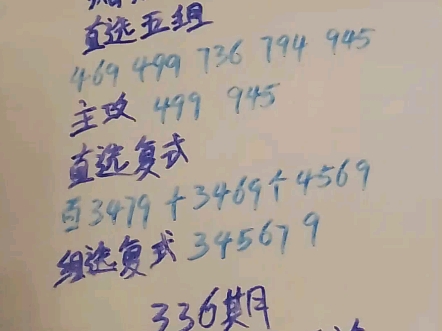 直选五组
469 499 736 794 945
主攻 499 945
直选复式
百3479十3469个4569
组选复式 345679
336期